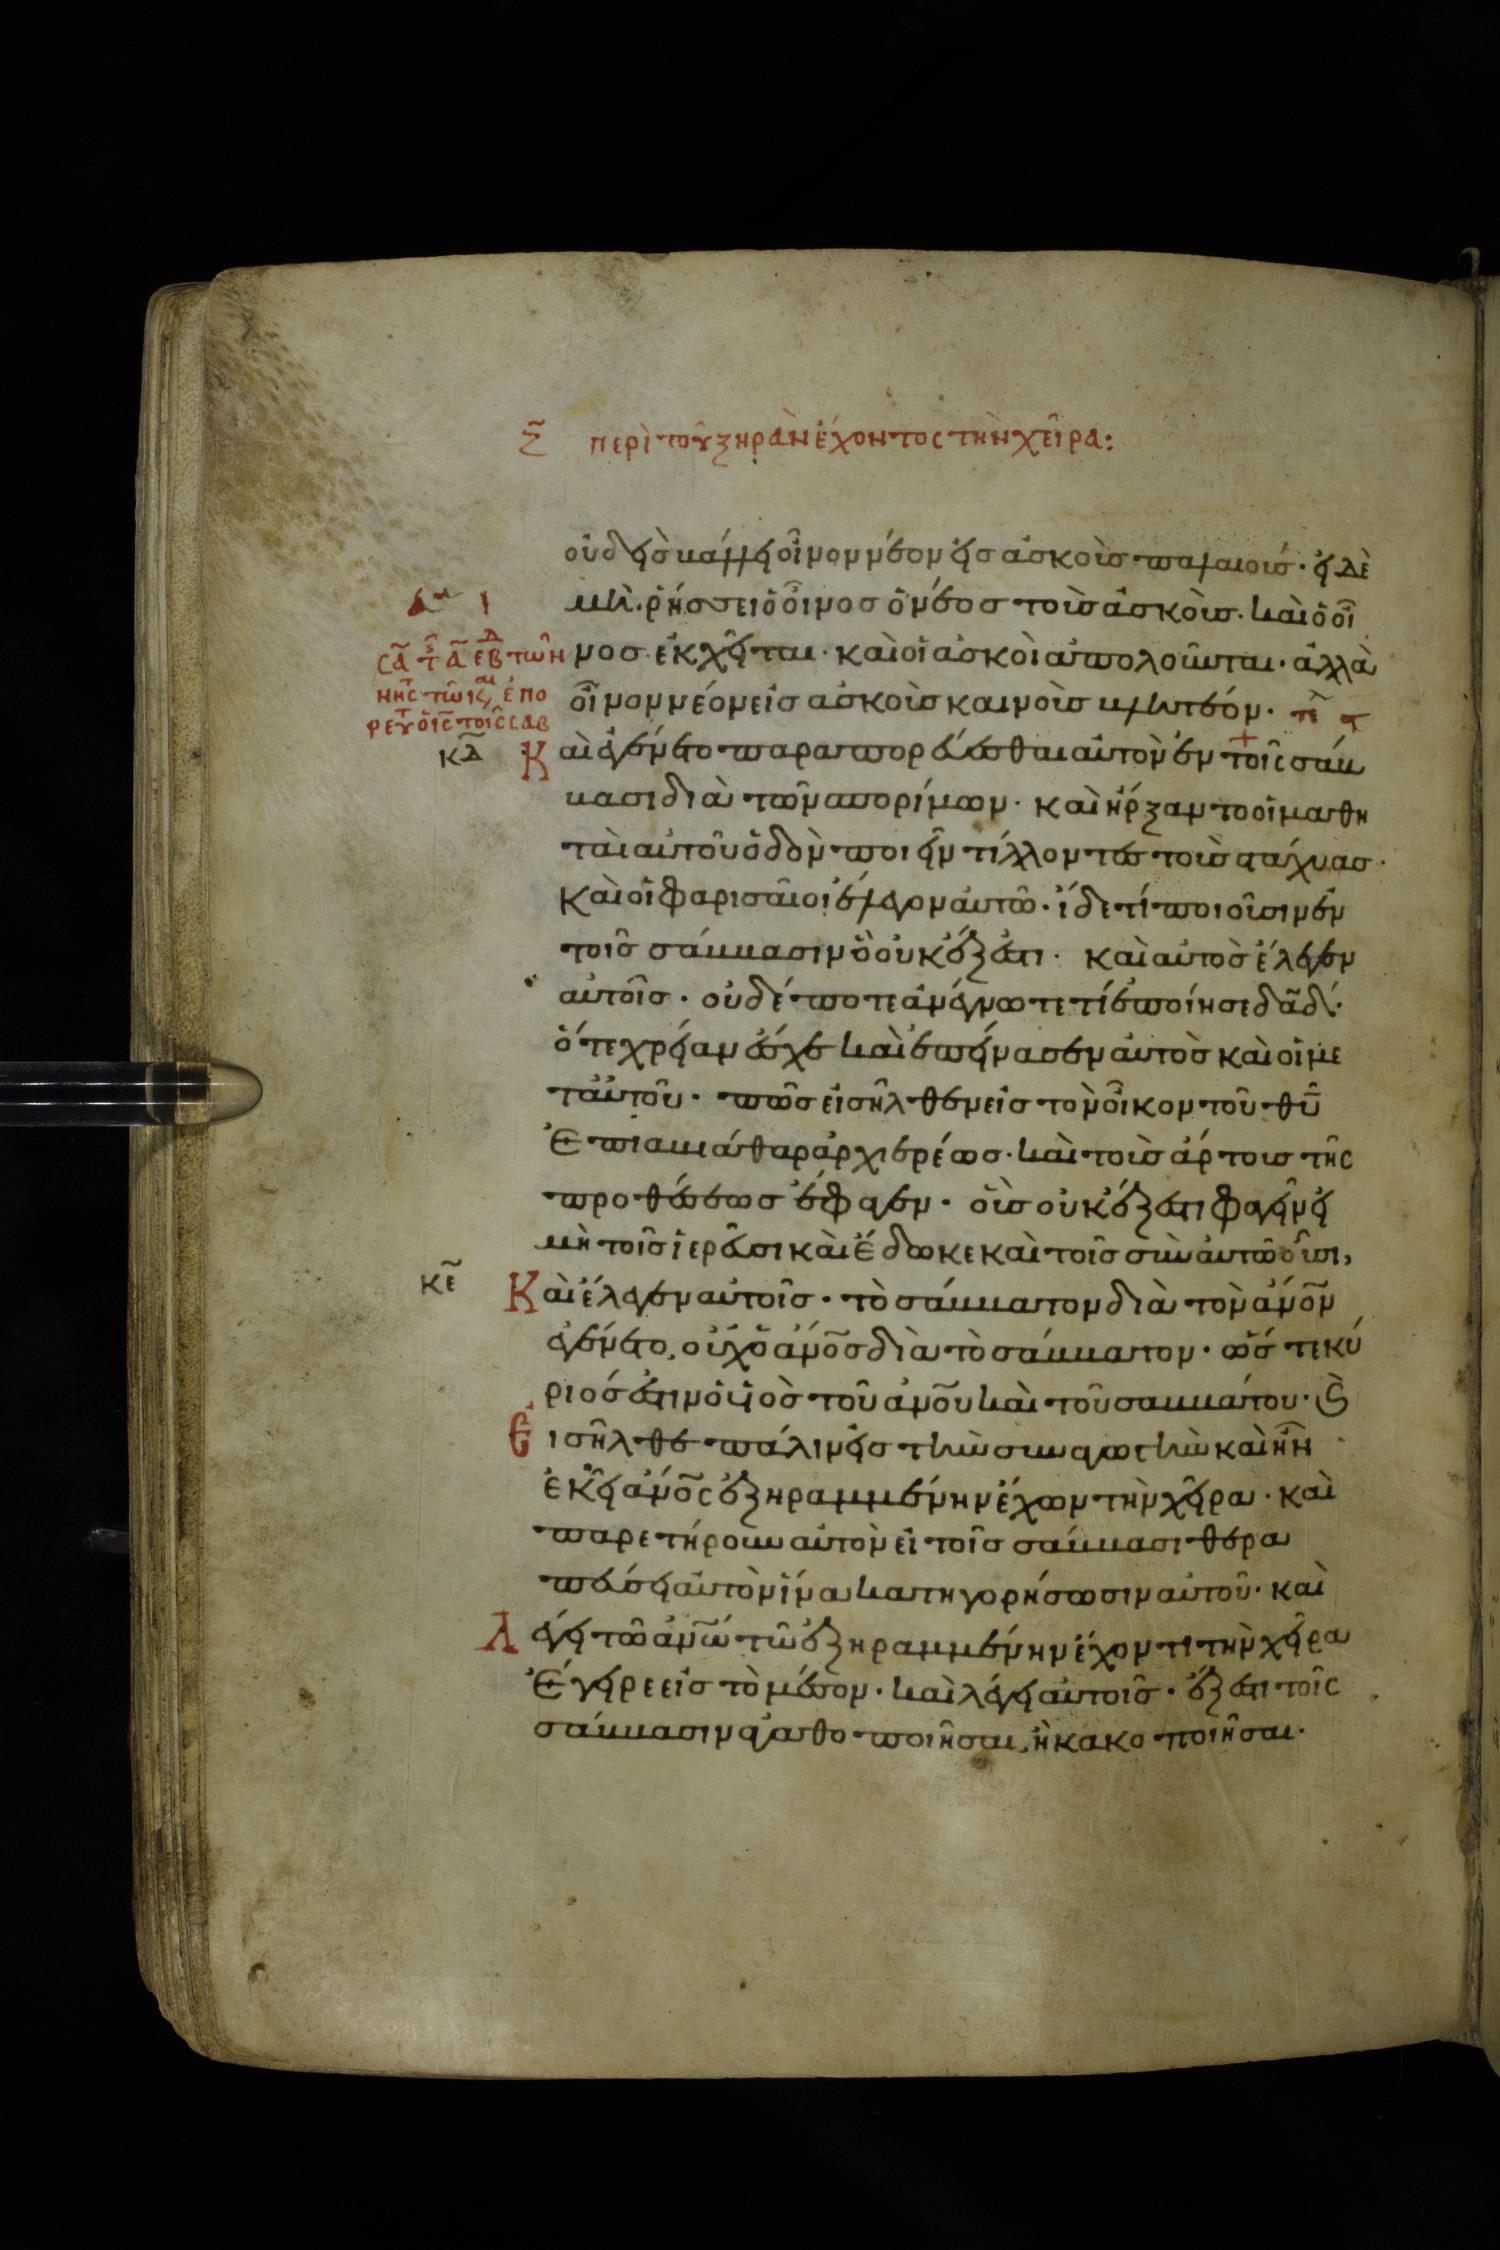 ς̃ περὶ τοῦ ξηρὰν ἔχοντος τὴν χεῖρα:
οὐδεὶς βάλλει οἶνον νέον εἰς ἀσκοὺς παλαιούς· εἰ δὲ
μὴ· ῥήσσει ὁ οἶνος ὁ νέος τοὺς ἀσκοὺς· καὶ ὁ οἶ
νος ἐκχεῖται· καὶ οἱ ἀσκοὶ ἀπολοῦνται· ἀλλὰ
οἶνον νέον εἰς ἀσκοὺς καινοὺς βλητέον·
κ̃δ Καὶ ἐγένετο παραπορεύεσθαι αὐτὸν ἐν τοῖς σάβ
βασι διὰ τῶν σπορίμων· καὶ ἤρξαντο οἱ μαθη
ταὶ αὐτοῦ ὁδὸν ποιεῖν τίλλοντες τοὺς στάχυας·
καὶ οἱ φαρισαῖοι ἔλεγον αὐτῶ· ἴδε τί ποιοῦσιν ἐν
τοῖς σάββασιν ὃ οὐκ ἔξεστι· καὶ αὐτὸς ἔλεγεν
αὐτοῖς· οὐδέποτε ἀνέγνωτε τί ἐποίησε δ̃α̃δ·
ὅτε χρείαν ἔσχε καὶ ἐπείνασεν αὐτὸς καὶ οἱ με
τ' αὐτοῦ· πῶς εἰσῆλθεν εἰς τὸν οἶκον τοῦ θ̅υ̅
ἐπι ἀβιάθαρ ἀρχιερέως· καὶ τοὺς ἄρτους τῆς
προθέσεως ἔφαγεν· οὓς οὐκ ἔξεστι φαγεῖν εἰ
μὴ τοῖς ἱερεῦσι καὶ ἔδωκε καὶ τοῖς σὺν αὐτῶ οὖσι,
κ̃ε Καὶ ἔλεγεν αὐτοῖς· τὸ σάββατον διὰ τὸν ἄν̅ο̅ν̅
ἐγένετο, οὐχ ὁ ἄν̅ο̅ς̅ διὰ τὸ σάββατον· ὥστε κύ
ριός ἐστιν ὁ υἱὸς τοῦ ἀν̅ο̅υ̅ καὶ τοῦ σαββάτου·
Εἰσῆλθε πάλιν εἰς τὴν συναγωγὴν καὶ ἦν
ἐκεῖ ἄν̅ο̅ς̅ ἐξηραμμένην ἔχων τὴν χεῖρα· καὶ
παρετήρουν αὐτὸν εἰ τοῖς σάββασι θερα
πεύσει αὐτὸν ἵνα κατηγορήσωσιν αὐτοῦ· καὶ
Λέγει τῶ ἀν̅ω̅ τῶ ἐξηραμμένην ἔχοντι τὴν χεῖρα
ἔγειρε εἰς τὸ μέσον· καὶ λέγει αὐτοῖς· ἔξεστι τοῖς
σάββασιν ἀγαθοποιῆσαι, ἢ κακοποιῆσαι·